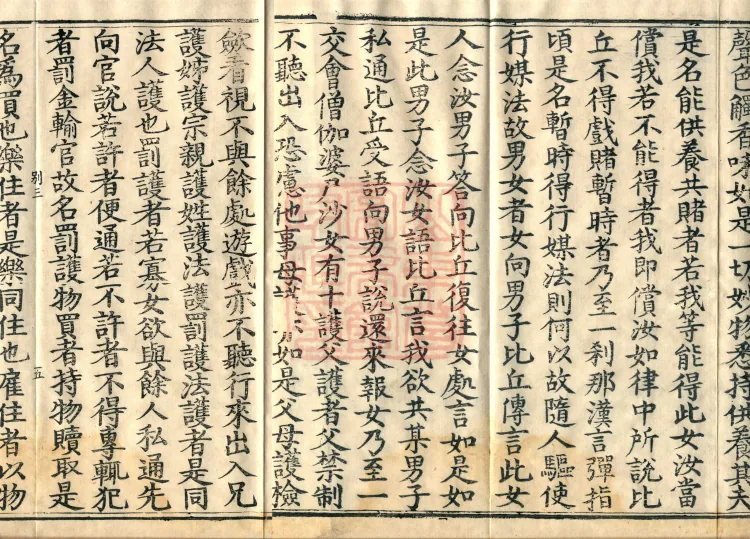 聲色觸香味如是一切妙物悉持供養其夫
是名能供養共賭者若我等能得此女汝當
償我若不能得者我即償汝如律中所說比
丘不得戲賭暫時者乃至一刹那漢言彈指
頃是名暫時得行媒法則何以故隨人驅使
行媒法故男女者女向男子比丘傳言此女
人念汝男子答向比丘復往女處言如是如
是此男子念汝女語比丘言我欲共某男子
私通比丘受語向男子說還來報女乃至一
交會僧伽婆尸沙女有十護父護者父禁制
不聽出入恐慮他事母護亦如是父母護檢
斂看視不與餘處遊戲亦不聽行來出入兄
護姊護宗親護姓護法護罰護法護者是同
法人護也罰護者若寡女欲與餘人私通先
向官說若許者便通若不許者不得專輒犯
者罰金輸官故名罰護物買者持物贖取是
別三
五
名爲買也樂住者是樂同住也雇住者以物